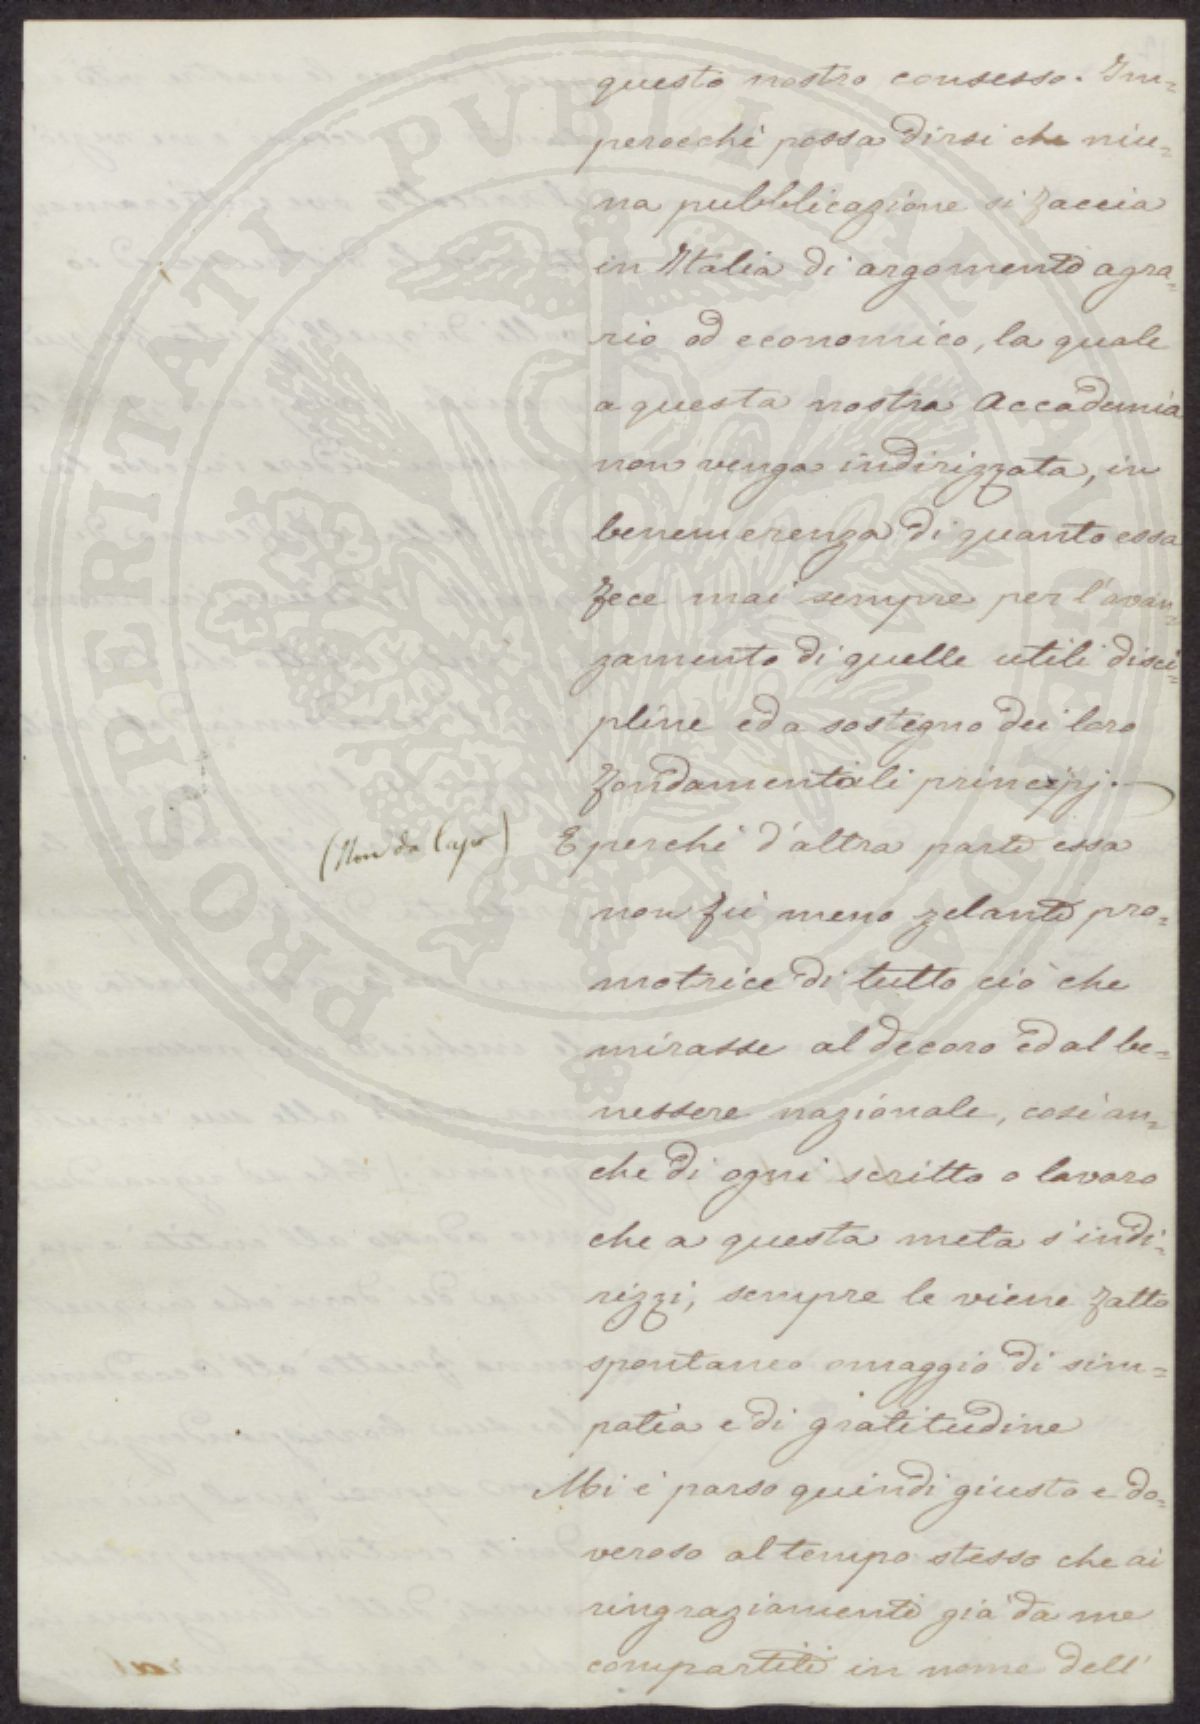 questo nostro consesso. Im=
perocchè possa dirsi che niu=
na pubblicazione si faccia
in Italia di argomento agra=
rio od economico, la quale
a questa nostra Accademia
non venga indirizzata, in
benemerenza di quanto essa
fece mai sempre per l'avan=
zamento di quelle utili disci=
pline ed a sostegno dei loro
fondamentali principj.
(Non da Capo)
E perchè d'altra parte essa
non fù meno zelante pro=
motrice di tutto ciò che
mirasse al decoro ed al be=
nessere nazionale, così an=
che di ogni scritto o lavoro
che a questa meta s'indi=
rizzi, sempre le viene fatto
spontaneo omaggio di sim=
patia e di gratitudine
Mi è parso quindi giusto e do=
veroso al tempo stesso che ai
ringraziamenti già da me
compartiti in nome dell'
PROSPERITATI PUBLICAE AUGENDAE